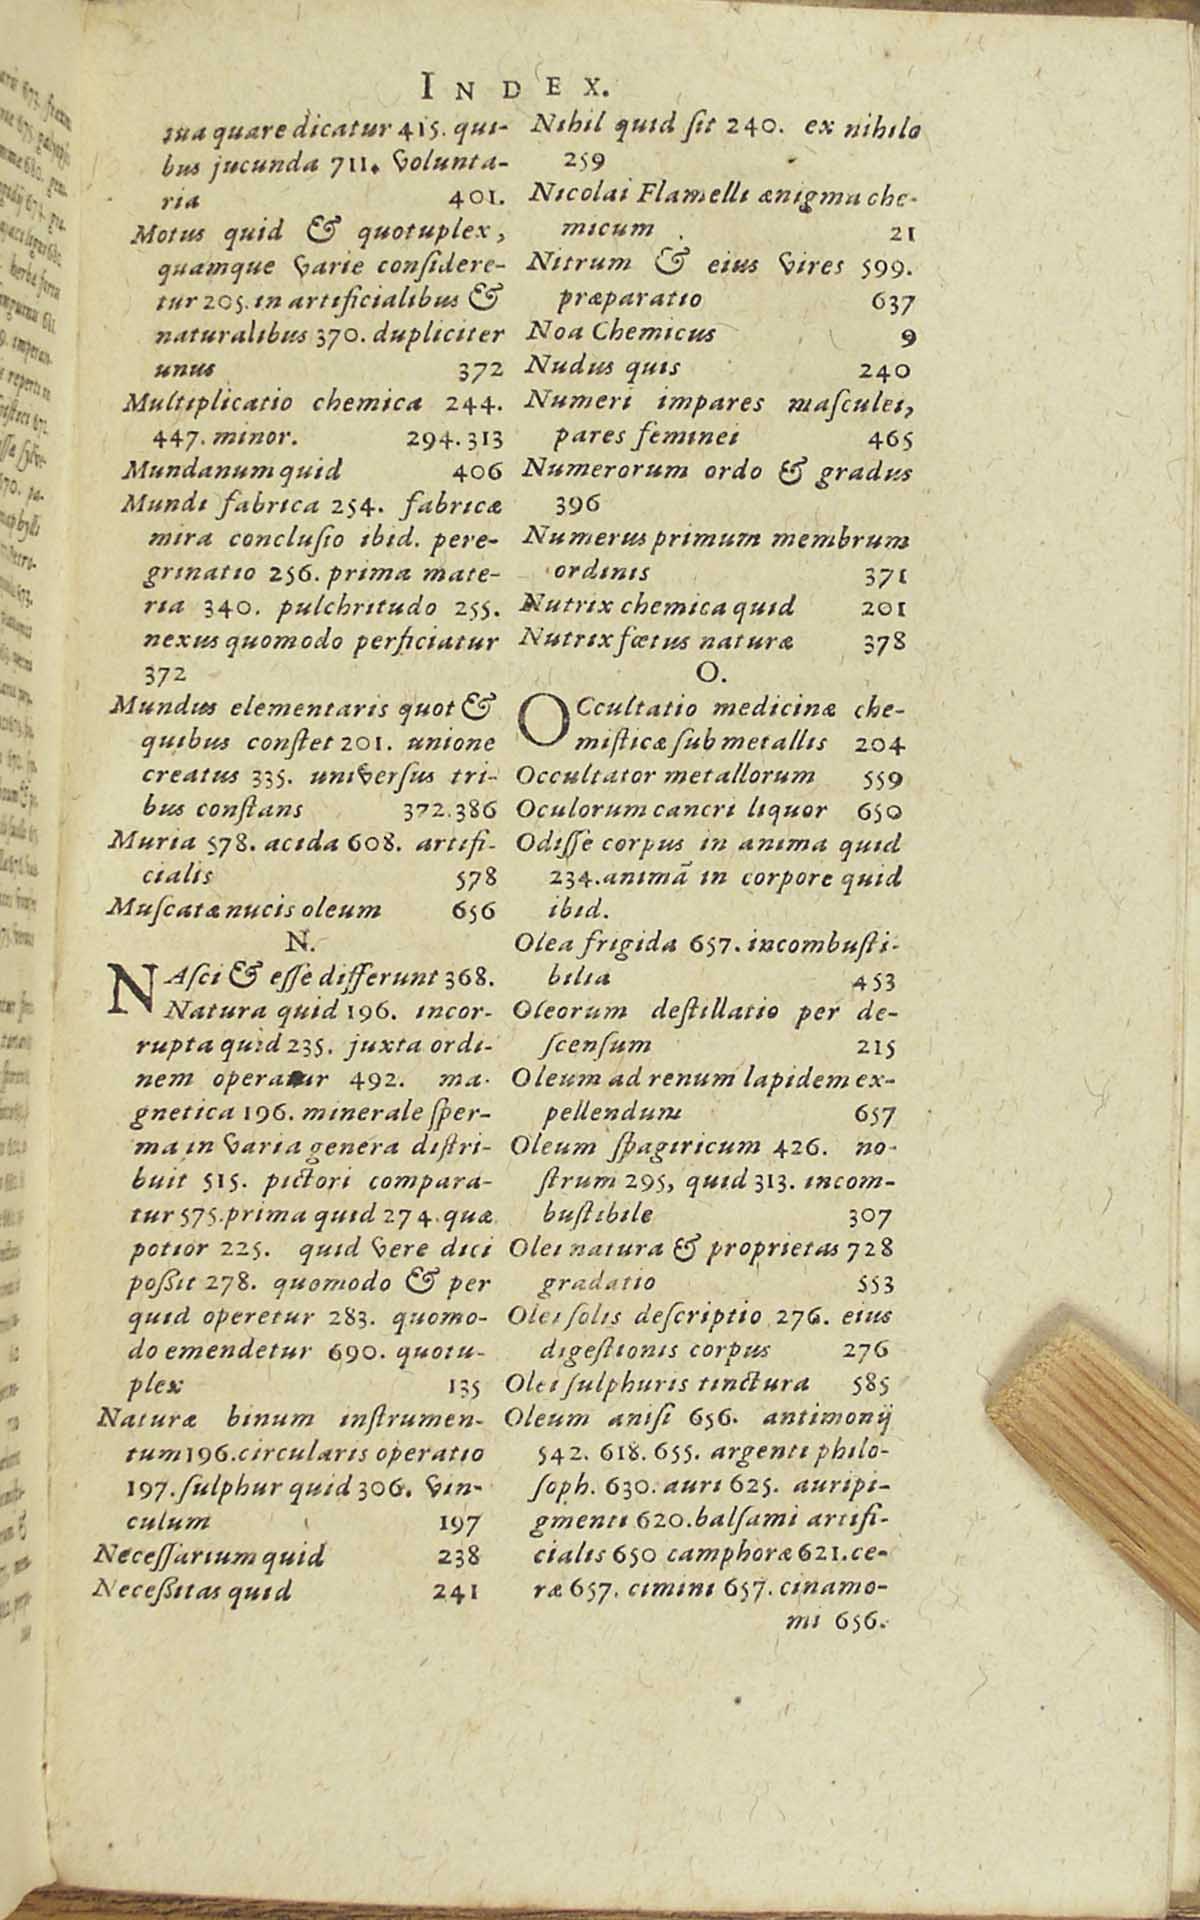 INDEX.
tua quare dicatur 415. qui-
bus jucunda 711. volunta-
ria 401.
Motus quid & quotuplex,
quamque varie conſidere-
tur 205. in artificialibus &
naturalibus 370. dupliciter
unus 372
Multiplicatio chemica 244.
447. minor. 294.313
Mundanum quid 406
Mundi fabrica 254. fabricæ
mira concluſio ibid. pere-
grinatio 256. prima mate-
ria 340. pulchritudo 255.
nexus quomodo perficiatur
372
Mundus elementaris quot &
quibus conſtet 201. unione
creatus 335. univerſus tri-
bus conſtans 372.386
Muria 578. acida 608. artifi-
cialis 578
Muſcatæ nucis oleum 656
N.
NAſci & eſſe differunt 368.
Natura quid 196. incor-
rupta quid 235. juxta ordi-
nem operatur 492. ma-
gnetica 196. minerale ſper-
ma in varia genera diſtri-
buit 515. pictori compara-
tur 575. prima quid 274. quæ
potior 225. quid vere dici
poßit 278. quomodo & per
quid operetur 283. quomo-
do emendetur 690. quotu-
plex 135
Naturæ binum inſtrumen-
tum 196. circularis operatio
197. ſulphur quid 306. vin-
culum 197
Neceſſarium quid 238
Neceßitas quid 241
Nihil quid ſit 240. ex nihilo
259
Nicolai Flamelli ænigma che-
micum 21
Nitrum & eius vires 599.
præparatio 637
Noa Chemicus 9
Nudus quis 240
Numeri impares maſculei,
pares feminei 465
Numerorum ordo & gradus
396
Numerus primum membrum
ordinis 371
Nutrix chemica quid 201
Nutrix fœtus naturæ 378
O.
OCcultatio medicinæ che-
miſticæ ſub metallis 204
Occultator metallorum 559
Oculorum cancri liquor 650
Odiſſe corpus in anima quid
234. animā in corpore quid
ibid.
Olea frigida 657. incombuſti-
bilia 453
Oleorum deſtillatio per de-
ſcenſum 215
Oleum ad renum lapidem ex-
pellendum 657
Oleum ſpagiricum 426. no-
ſtrum 295, quid 313. incom-
buſtibile 307
Olei natura & proprietas 728
gradatio 553
Olei ſolis deſcriptio 276. eius
digeſtionis corpus 276
Olei ſulphuris tinctura 585
Oleum aniſi 656. antimonij
542. 618. 655. argenti philo-
ſoph. 630. auri 625. auripi-
gmenti 620. balſami artifi-
cialis 650 camphoræ 621. ce-
ræ 657. cimini 657. cinamo-
mi 656.